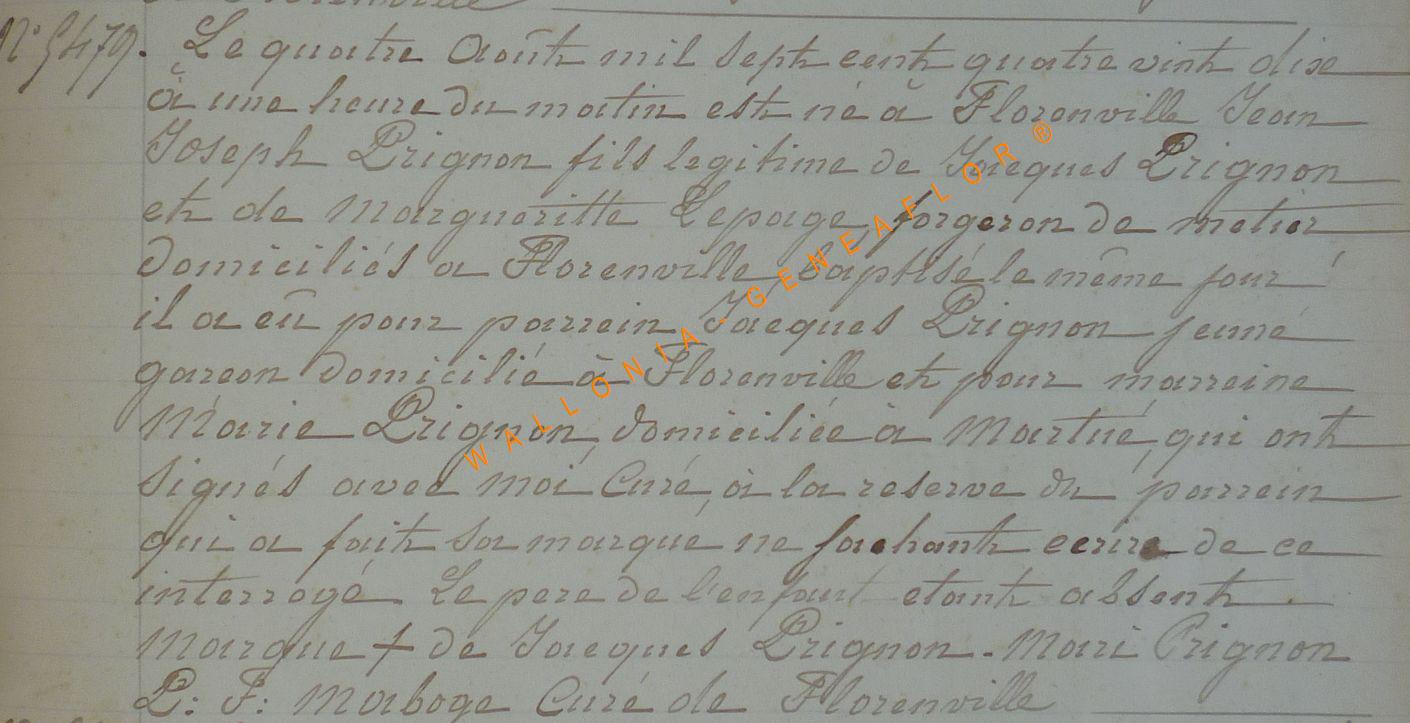 N° 5479. Le quatre Août mil sept cent quatre vint dix
à une heure du matin est né à Florenville Jean
Joseph Prignon fils legitime de Jacques Prignon
et de Margueritte Lepage, forgeron de metier
domiciliés a Florenville, baptisé le même jour
il a eû pour parrein Jacques Prignon jeune
garcon domicilié à Florenville et pour marreine
Marie Prignon, domiciliée à Martué, qui ont
signés avec moi Curé, à la reserve du parrein
qui a fait sa marque ne sachant ecrire de ce
interrogé. Le pere de l'enfant etant absent.
Marque + de Jacques Prignon. Mari Prignon
P: F: Maboge Curé de Florenville
WALLONIA-GENEAFLOR ®